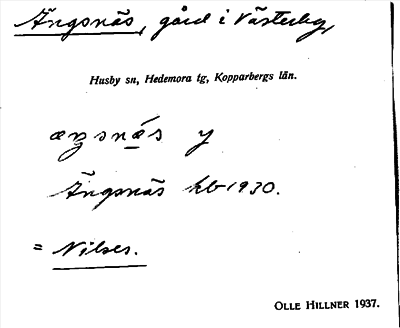 Ängsnäs, gård i Västerby,
Husby sn, Hedemora tg, Kopparbergs län.
æŋsnä́s y
Ängsnäs kb 1930.
= Nilses.
OLLE HILLNER 1937.